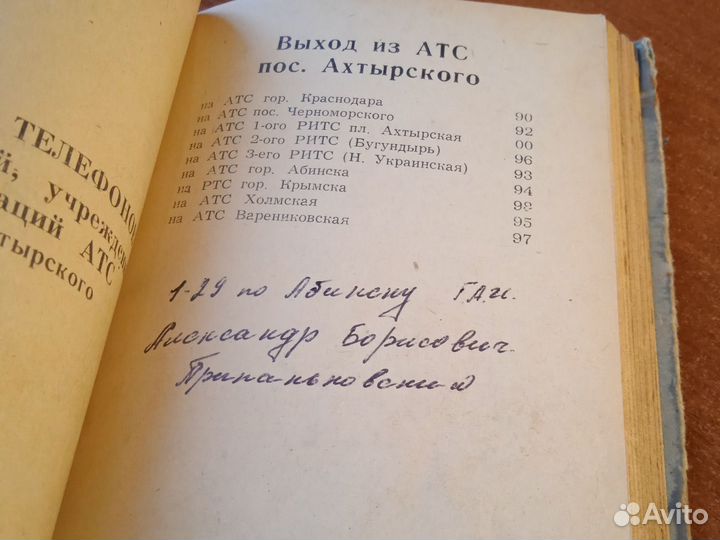 ТЕЛЕФОНО
й, учрежден
аций АТС
хтырского
Выход из АТС
пос. Ахтырского
на АТС гор. Краснодара 90
на АТС пос. Черноморского 92
на АТС 1-ого РИТС пл. Ахтырская 00
на АТС 2-ого РИТС (Бугундырь) 96
на АТС 3-его РИТС (Н. Украинская) 93
на АТС гор. Абинска 94
на РТС гор. Крымска 98
на АТС Холмская 95
на АТС Варениковская 97
1-29 по Абинску ГАИ.
Александр Борисович
Avito